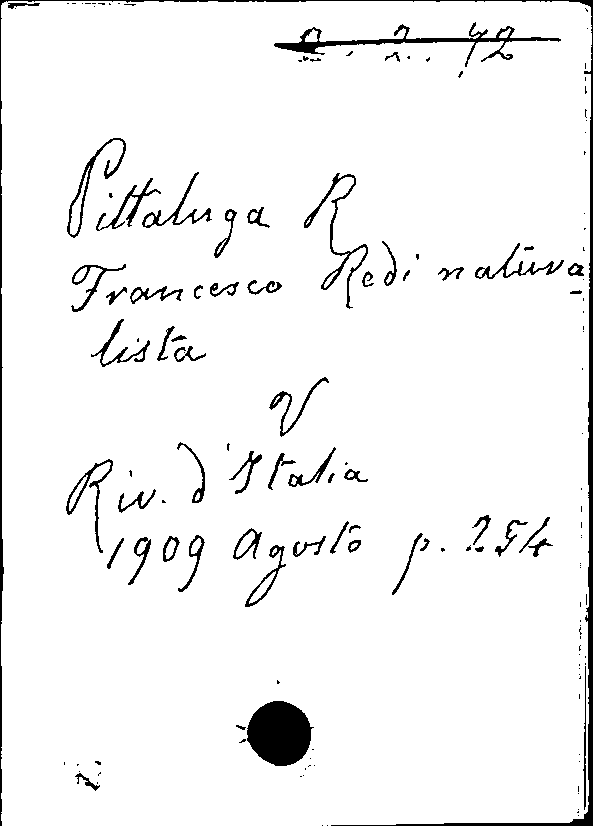 2. 2. 72
Pittaluga R
Francesco Redi natura
lista
V
Riv. d'Italia
1909 Agosto p. 254